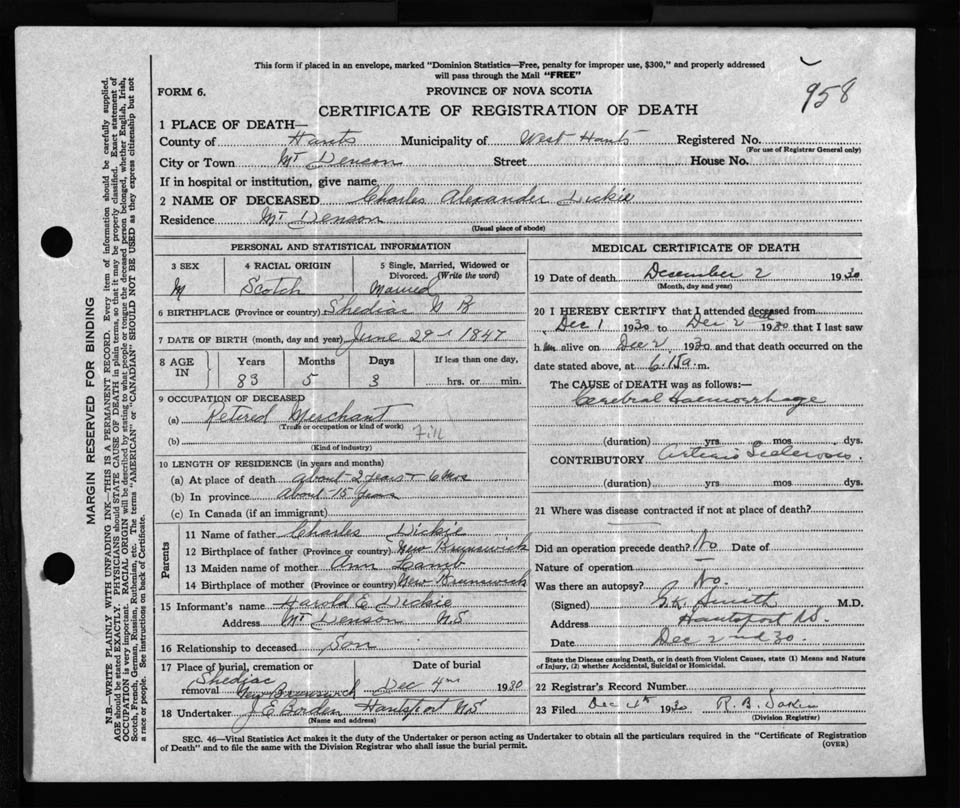 This form if placed in an envelope, marked "Dominion Statistics—Free, penalty for improper use, $300," and properly addressed
will pass through the Mail "FREE"
958
FORM 6.
PROVINCE OF NOVA SCOTIA
CERTIFICATE OF REGISTRATION OF DEATH
1 PLACE OF DEATH—
County of Hants Municipality of West Hants Registered No.
(For use of Registrar General only)
City or Town Mt Denson Street House No.
If in hospital or institution, give name
2 NAME OF DECEASED Charles Alexander Dickie
Residence Mt Denson
(Usual place of abode)
PERSONAL AND STATISTICAL INFORMATION
3 SEX 4 RACIAL ORIGIN 5 Single, Married, Widowed or
Divorced. (Write the word)
M Scotch Married
6 BIRTHPLACE (Province or country) Shediac N B
7 DATE OF BIRTH (month, day and year) June 29 1847
8 AGE IN Years Months Days If less than one day,
83 5 3 hrs. or min.
9 OCCUPATION OF DECEASED
(a) Retired Merchant
(Trade or occupation or kind of work)
(b)
(Kind of industry)
10 LENGTH OF RESIDENCE (in years and months)
(a) At place of death About 2 years + 6 mos
(b) In province About 15 years
(c) In Canada (if an immigrant)
Parents
11 Name of father Charles Dickie
12 Birthplace of father (Province or country) New Brunswick
13 Maiden name of mother Ann Lamb
14 Birthplace of mother (Province or country) New Brunswick
15 Informant's name Harold E Dickie
Address Mt Denson N.S
16 Relationship to deceased Son
17 Place of burial, cremation or Date of burial
removal Shediac New Brunswick Dec 4th 1930
18 Undertaker J E Borden Hantsport N S
(Name and address)
MEDICAL CERTIFICATE OF DEATH
19 Date of death December 2 1930
(Month, day and year)
20 I HEREBY CERTIFY that I attended deceased from
Dec 1 1930 to Dec 2nd 1930 that I last saw
him alive on Dec 2 1930 and that death occurred on the
date stated above, at 6.15 a.m.
The CAUSE OF DEATH was as follows:—
Cerebral Haemorrhage
(duration) yrs mos dys.
CONTRIBUTORY Arterio Sclerosis.
(duration) yrs. mos. dys.
21 Where was disease contracted if not at place of death?
Did an operation precede death? No Date of
Nature of operation
Was there an autopsy? No.
(Signed) Smith M.D.
Address Hantsport N.S.
Date Dec 2nd 30.
State the Disease causing Death, or in death from Violent Causes, state (1) Means and Nature
of Injury, (2) whether Accidental, Suicidal or Homicidal.
22 Registrar's Record Number
23 Filed Dec 4th 1930 R. B.
(Division Registrar)
SEC. 46—Vital Statistics Act makes it the duty of the Undertaker or person acting as Undertaker to obtain all the particulars required in the "Certificate of Registration
of Death" and to file the same with the Division Registrar who shall issue the burial permit.
(OVER)
MARGIN RESERVED FOR BINDING
N.B.—WRITE PLAINLY WITH UNFADING INK—THIS IS A PERMANENT RECORD. Every item of information should be carefully supplied.
AGE should be stated EXACTLY. PHYSICIANS should STATE CAUSE OF DEATH in plain terms, so that it may be properly classified. Exact statement of
OCCUPATION is very important. RACIAL ORIGIN will be described by stating to what people or tongue the deceased person belonged, whether English, Irish,
Scotch, French, German, Russian, Ruthenian, etc. The terms "AMERICAN" or "CANADIAN" SHOULD NOT BE USED as they express citizenship but not
a race or people. See instructions on back of Certificate.